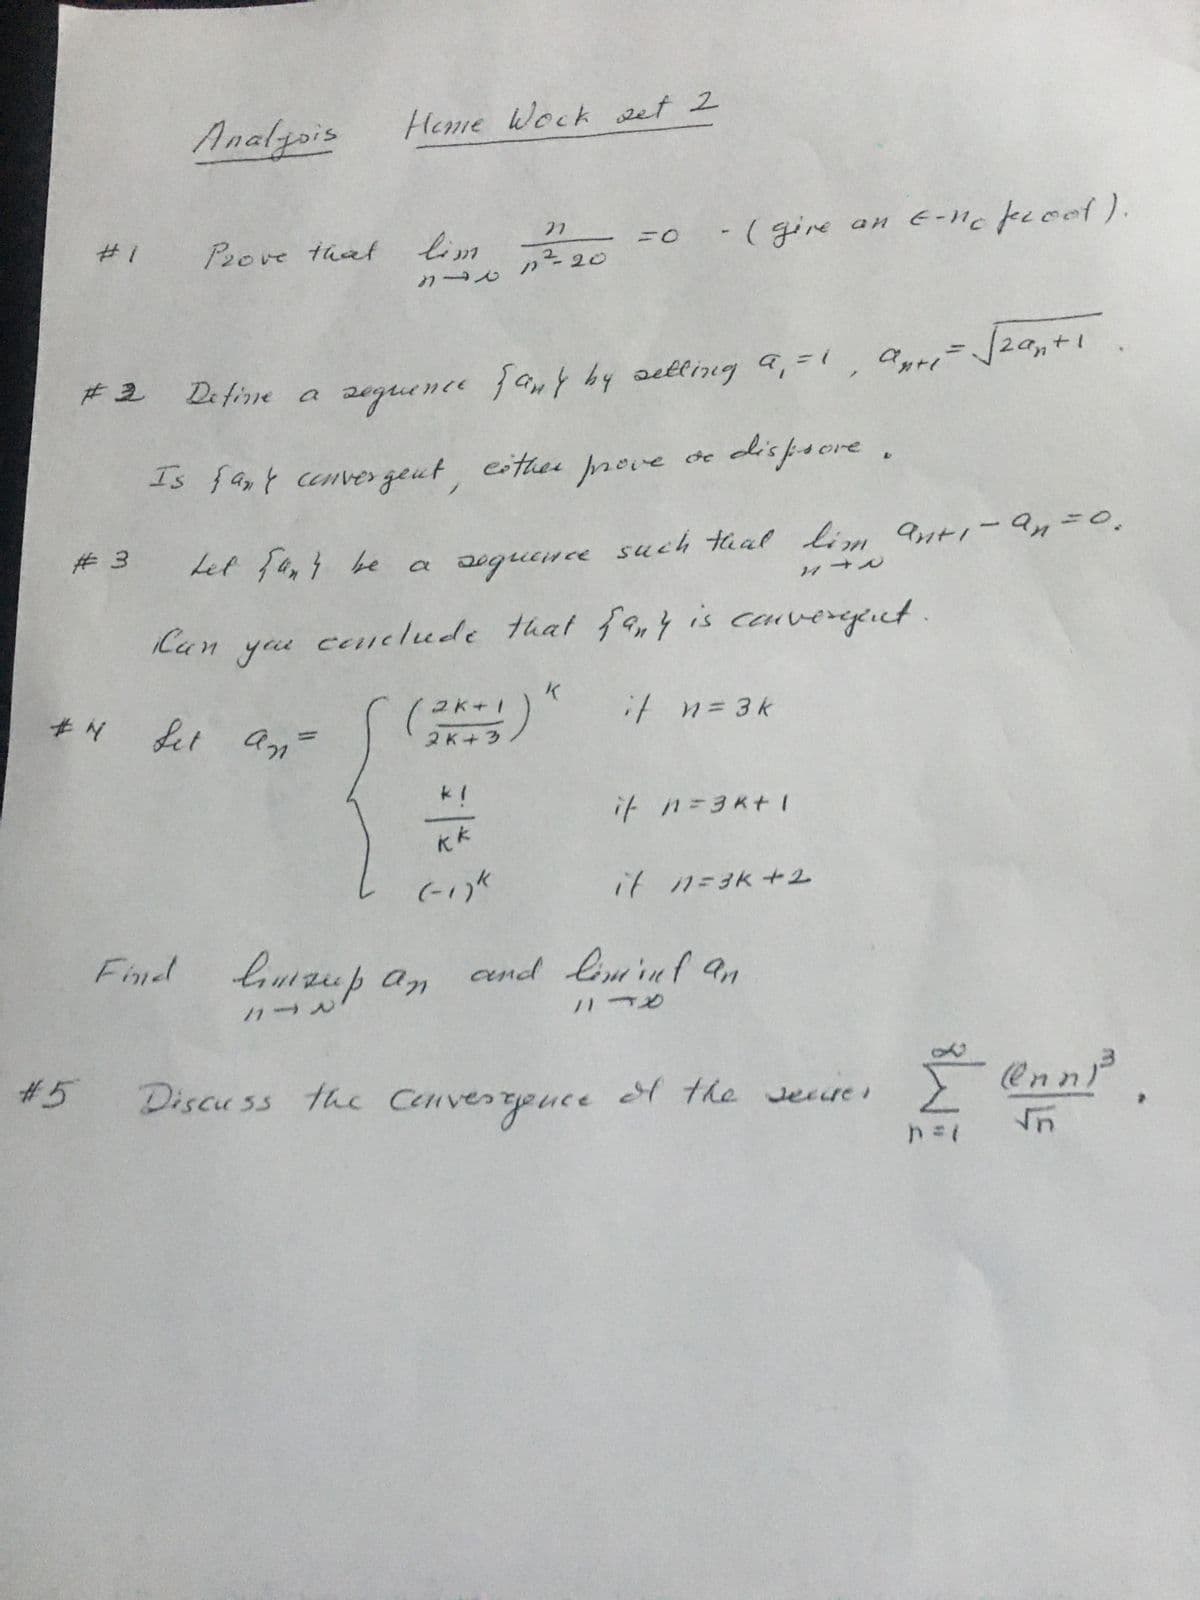 Analysis Home Work set 2
#1 Prove that lim n→∞ n/(n²-20) =0 - (give an ε-n₀ proof).
#2 Define a sequence {aₙ} by setting a₁=1, aₙ₊₁=√(2aₙ+1).
Is {aₙ} convergent, either prove or disprove.
#3 Let {aₙ} be a sequence such that lim n→∞ aₙ₊₁-aₙ=0.
Can you conclude that {aₙ} is convergent.
#4 Let aₙ= { ((2k+1)/(2k+3))^k if n=3k
k!/k^k if n=3k+1
(-1)^k if n=3k+2
Find limsup aₙ and liminf aₙ
n→∞ n→∞
#5 Discuss the convergence of the series ∑ n=1 ∞ (ln n)³/√n.